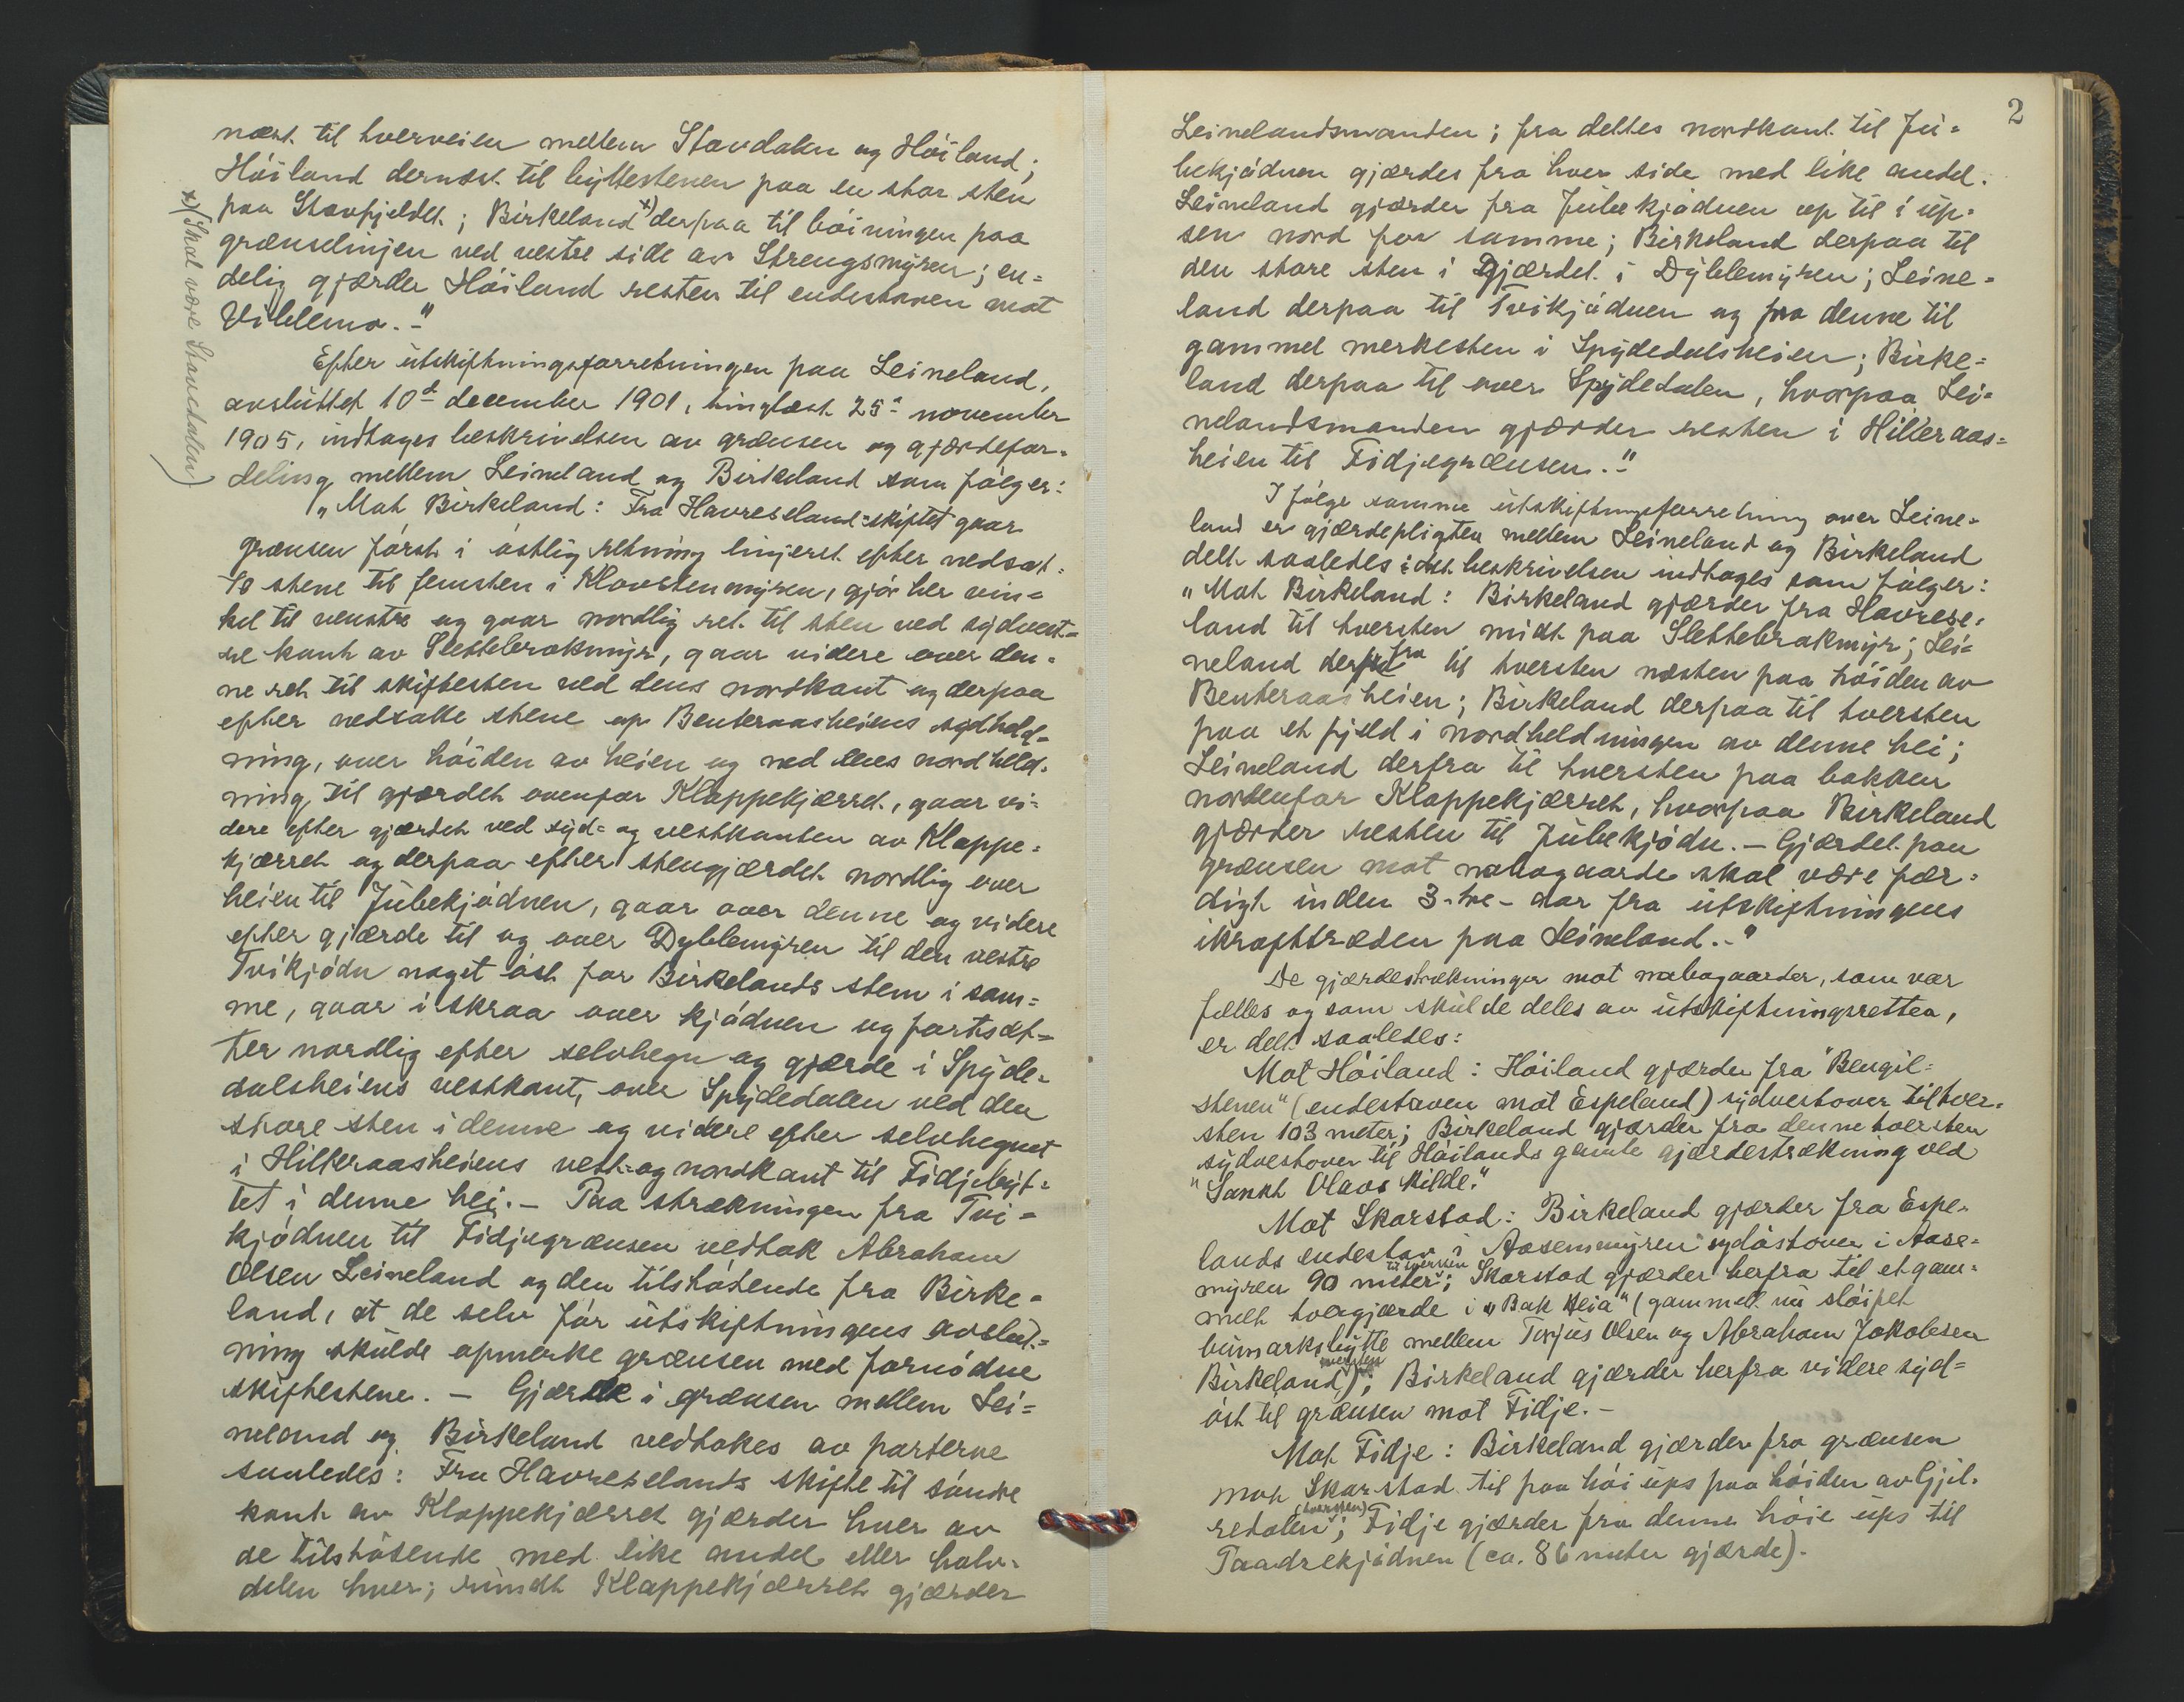 næst til tverveien mellem Stavdalen og Höiland;
Höiland dernæst til byttestenen paa en stor sten
paa Stavfjeldet; Birkeland x) derpaa til böiningen paa
grænselinjen ved vestre side av Strengsmyren; en=
delig gjærder Höiland resten til endestaven mot
Viblemo.-"
x) (Skal være Stavdalen)
Efter utskiftningsforretningen paa Leineland,
avsluttet 10de december 1901, tinglæst 25de november
1905, indtages beskrivelsen av grænsen og gjærdefor=
deling mellem Leineland og Birkeland som fölger:
"Mot Birkeland: Fra Havreseland=skiftet gaar
grænsen först i östlig retning linjeret efter nedsat=
te stene til femsten i Klovstenmyren, gjör her vin=
kel til venstre og gaar nordlig ret til sten ved sydvest=
re kant av Slettebrokmyr, gaar videre over den=
ne ret til skiftesten ved dens nordkant og derpaa
efter nedsatte stene op Benteraasheiens sydheld=
ning, over höiden av heien og ned dens nordheld=
ning til gjærdet ovenfor Klappekjærret, gaar vi=
dere efter gjærdet ved syd= og vestkanten av Klappe=
kjærret og derpaa efter stengjærdet nordlig over
heien til Jubekjödnen, gaar over denne og videre
efter gjærde til og over Dyblemyren til den vestre
Tvikjödn noget öst for Birkelands stem i sam=
me, gaar i skraa over kjödnen og fortsæt=
ter nordlig efter selvhegn og gjærde i Spyde=
dalsheiens vestkant, over Spydedalen ved den
store sten i denne og videre efter selvhegnet
i Hilleraasheiens vest=og nordkant til Fidjebyt=
tet i denne hei. - Paa strækningen fra Tvi=
kjödnen til Fidjegrænsen vedtok Abraham
Olsen Leineland og den tilstötende fra Birke=
land, at de selv för utskiftningens avslut=
ning skulde opmerke grænsen med fornödne
skiftestene. - Gjærde i grænsen mellem Lei=
neland og Birkeland vedtokes av parterne
saaledes: Fra Havreselands skifte til söndre
kant av Klappekjærret gjærder hver av
de tilstötende med like andel eller halv=
delen hver; rundt Klappekjærret gjærder
2
Leinelandsmanden; fra dettes nordkant til Ju=
bekjödnen gjærdes fra hver side med like andel.
Leineland gjærder fra Jubekjödnen op til i up=
sen nord for samme; Birkeland derpaa til
den store sten i gjærdet i Dyblemyren; Leine=
land derpaa til Tvikjödnen og fra denne til
gammel merkesten i Spydedalsheien; Birke=
land derpaa til over Spydedalen, hvorpaa Lei=
nelandsmanden gjærder resten i Hilleraas=
heien til Fidjegrænsen.-"
I fölge samme utskiftningsforretning over Leine=
land er gjærdepligten mellem Leineland og Birkeland
delt saaledes idet beskrivelsen indtages som fölger:
"Mot Birkeland: Birkeland gjærder fra Havrese=
land til tversten midt paa Slettebrokmyr; Lei=
neland derfra til tversten næsten paa höiden av
Benteraasheien; Birkeland derpaa til tversten
paa et fjeld i nordheldningen av denne hei;
Leineland derfra til tversten paa bakken
nordenfor Klappekjærret, hvorpaa Birkeland
gjærder resten til Jubekjödn. - Gjærdet paa
grænsen mot nabogaarde skal være fær=
digt inden 3-tre- aar fra utskiftningens
ikrafttræden paa Leineland.-"
De gjærdestrækninger mot nabogaarder, som var
fælles og som skulde deles av utskiftningsretten,
er delt saaledes:
Mot Höiland: Höiland gjærder fra "Bengil=
stenen" (endestaven mot Espeland) sydvestover til tver=
sten 103 meter; Birkeland gjærder fra denne tversten
sydvestover til Höilands gamle gjærdestrækning ved
"Sankt Olavs Kilde."
Mot Skarstad: Birkeland gjærder fra Espe=
lands endestav i Aasemmyren sydöstover i Aase=
myren 90 meter til tversten; Skarstad gjærder herfra til et gam=
melt tvergjærde i "Bak Heia" (gammelt nu slöifet
bumarksbytte mellem Terjus Olsen og Abraham Jakobsen
Birkeland) tversten; Birkeland gjærder herfra videre syd=
öst til grænsen mot Fidje.-
Mot Fidje: Birkeland gjærder fra grænsen
mot Skarstad til paa höi ups paa höiden av Gjil=
redalen (tversten); Fidje gjærder fra denne höie ups til
Paadrekjödnen (ca. 86 meter gjærde).